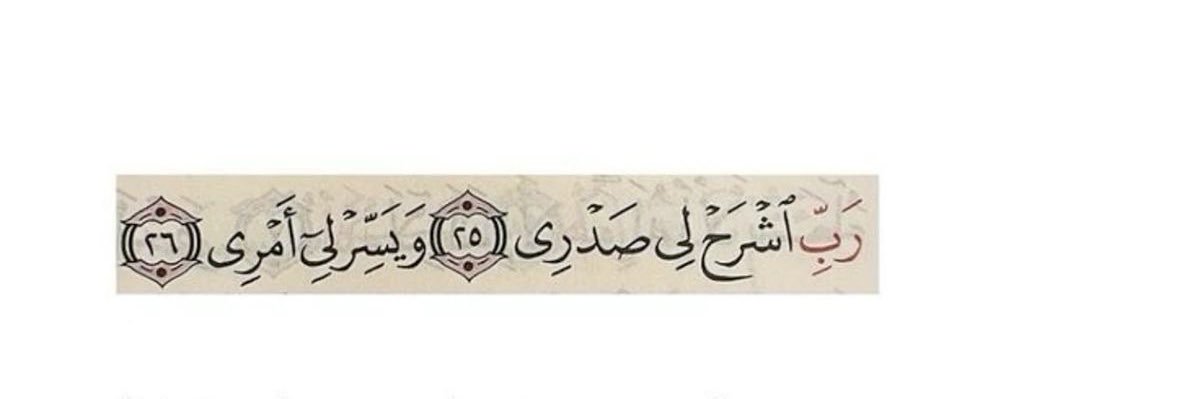 رَبِّ ٱشْرَحْ لِى صَدْرِى ٢٥ وَيَسِّرْ لِىٓ أَمْرِى ٢٦